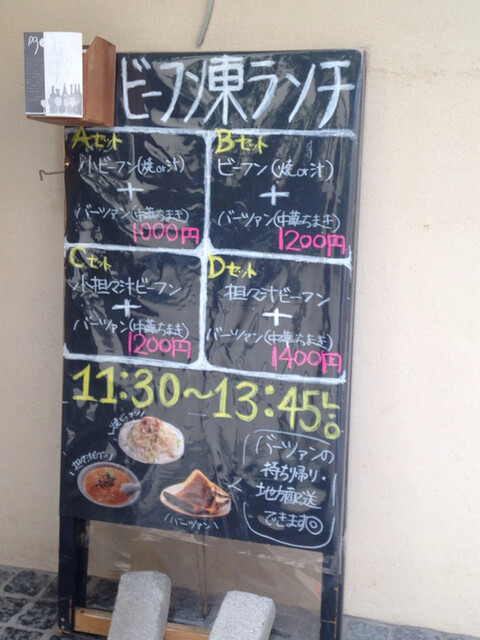 ビーフン東ランチ
Aセット
小ビーフン(焼or汁)
+
バーツァン(中華ちまき)
1000円
Bセット
ビーフン(焼or汁)
+
バーツァン(中華ちまき)
1200円
Cセット
小担々汁ビーフン
+
バーツァン(中華ちまき)
1200円
Dセット
担々汁ビーフン
+
バーツァン(中華ちまき)
1400円
11:30〜13:45 L.O
焼ビーフン
担々汁ビーフン
バーツァン
バーツァンの
持ち帰り・
地方配送
できます◎